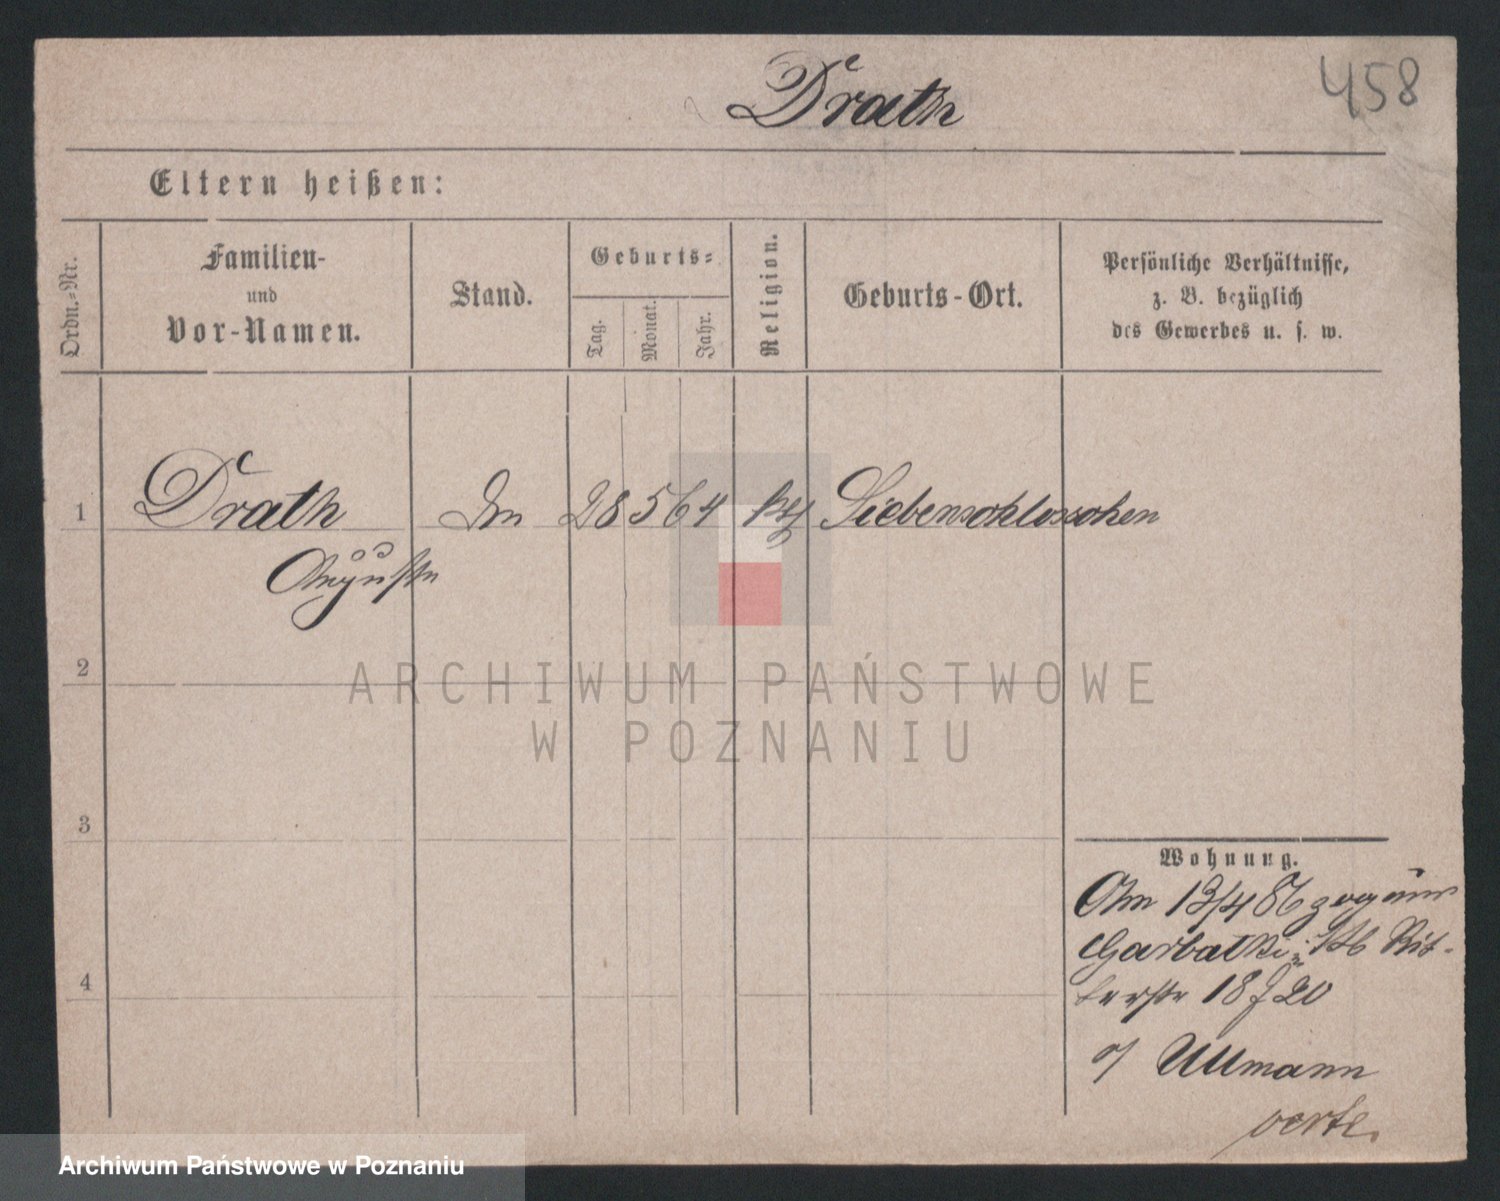 Drath
458
Eltern heißen:
Ordn.-Nr.
Familien-
und
Vor-Namen.
Stand.
Geburts-
Tag.
Monat.
Jahr.
Religion.
Geburts-Ort.
Persönliche Verhältnisse,
z. B. bezüglich
des Gewerbes u. s. w.
1 Drath 28 5 64 Siebenschlosschen
Auguste
2
ARCHIWUM PAŃSTWOWE
W POZNANIU
3
4
Wohnung.
Am 13/4 86 zog aus
Garbatki Rit-
terstr 18 J 20
b/ Ullmann
verte.
Archiwum Państwowe w Poznaniu